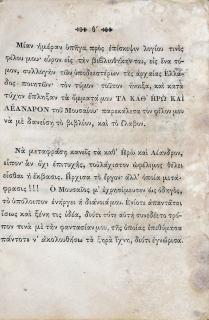 θ´
Μίαν ἡμέραν ὑπῆγα πρὸς ἐπίσκεψιν λογίου τινὸς
φίλου μου· εὗρον εἰς τὴν βιβλιοθήκην του, εἰς ἕνα τό-
μον, συλλογὴν τῶν ὑποδεεστέρων τῆς ἀρχαίας Ἑλλά-
δος ποιητῶν· τὸν τόμον τοῦτον ἤνοιξα, καὶ κατὰ
τύχην ἔπλησαν τὰ ὄμματά μου ΤΑ ΚΑΘ ΗΡΩ ΚΑΙ
ΛΕΑΝΔΡΟΝ τοῦ Μουσαίου· παρεκάλεσα τὸν φίλον μου
νὰ μὲ δανείσῃ τὸ βιβλίον, καὶ τὸ ἔλαβον.
Νὰ μεταφράσῃ κανεὶς τὰ καθ' Ἡρὼ καὶ Λέανδρον,
εἶπον ἂν ὄχι ἐπιτυχής, τοὐλάχιστον ὠφέλιμος θέλει
εἶσθαι ἡ ἔκβασις. Ἤρχισα τὸ ἔργον· ἀλλ' ὁποία μετά-
φρασις!!! Ὁ Μουσαῖος μ' ἐχρησίμευσεν ὡς ὁδηγὸς,
τὸ ὑπόλοιπον ἐνήργει ἡ διάνοιά μου. Ἐνίοτε ἀπαντᾶται
ἴσως καὶ ξένη τις ἰδέα, διότι τότε αὐτὴ συνέδεεν τρό-
πον τινὰ μὲ τὴν φαντασίαν μου, τῆς ὁποίας ἐπεθύμησα
πάντοτε ν' ἀκολουθήσω τὰ ξηρὰ ἴχνη, διότι ἐγνώρισα.